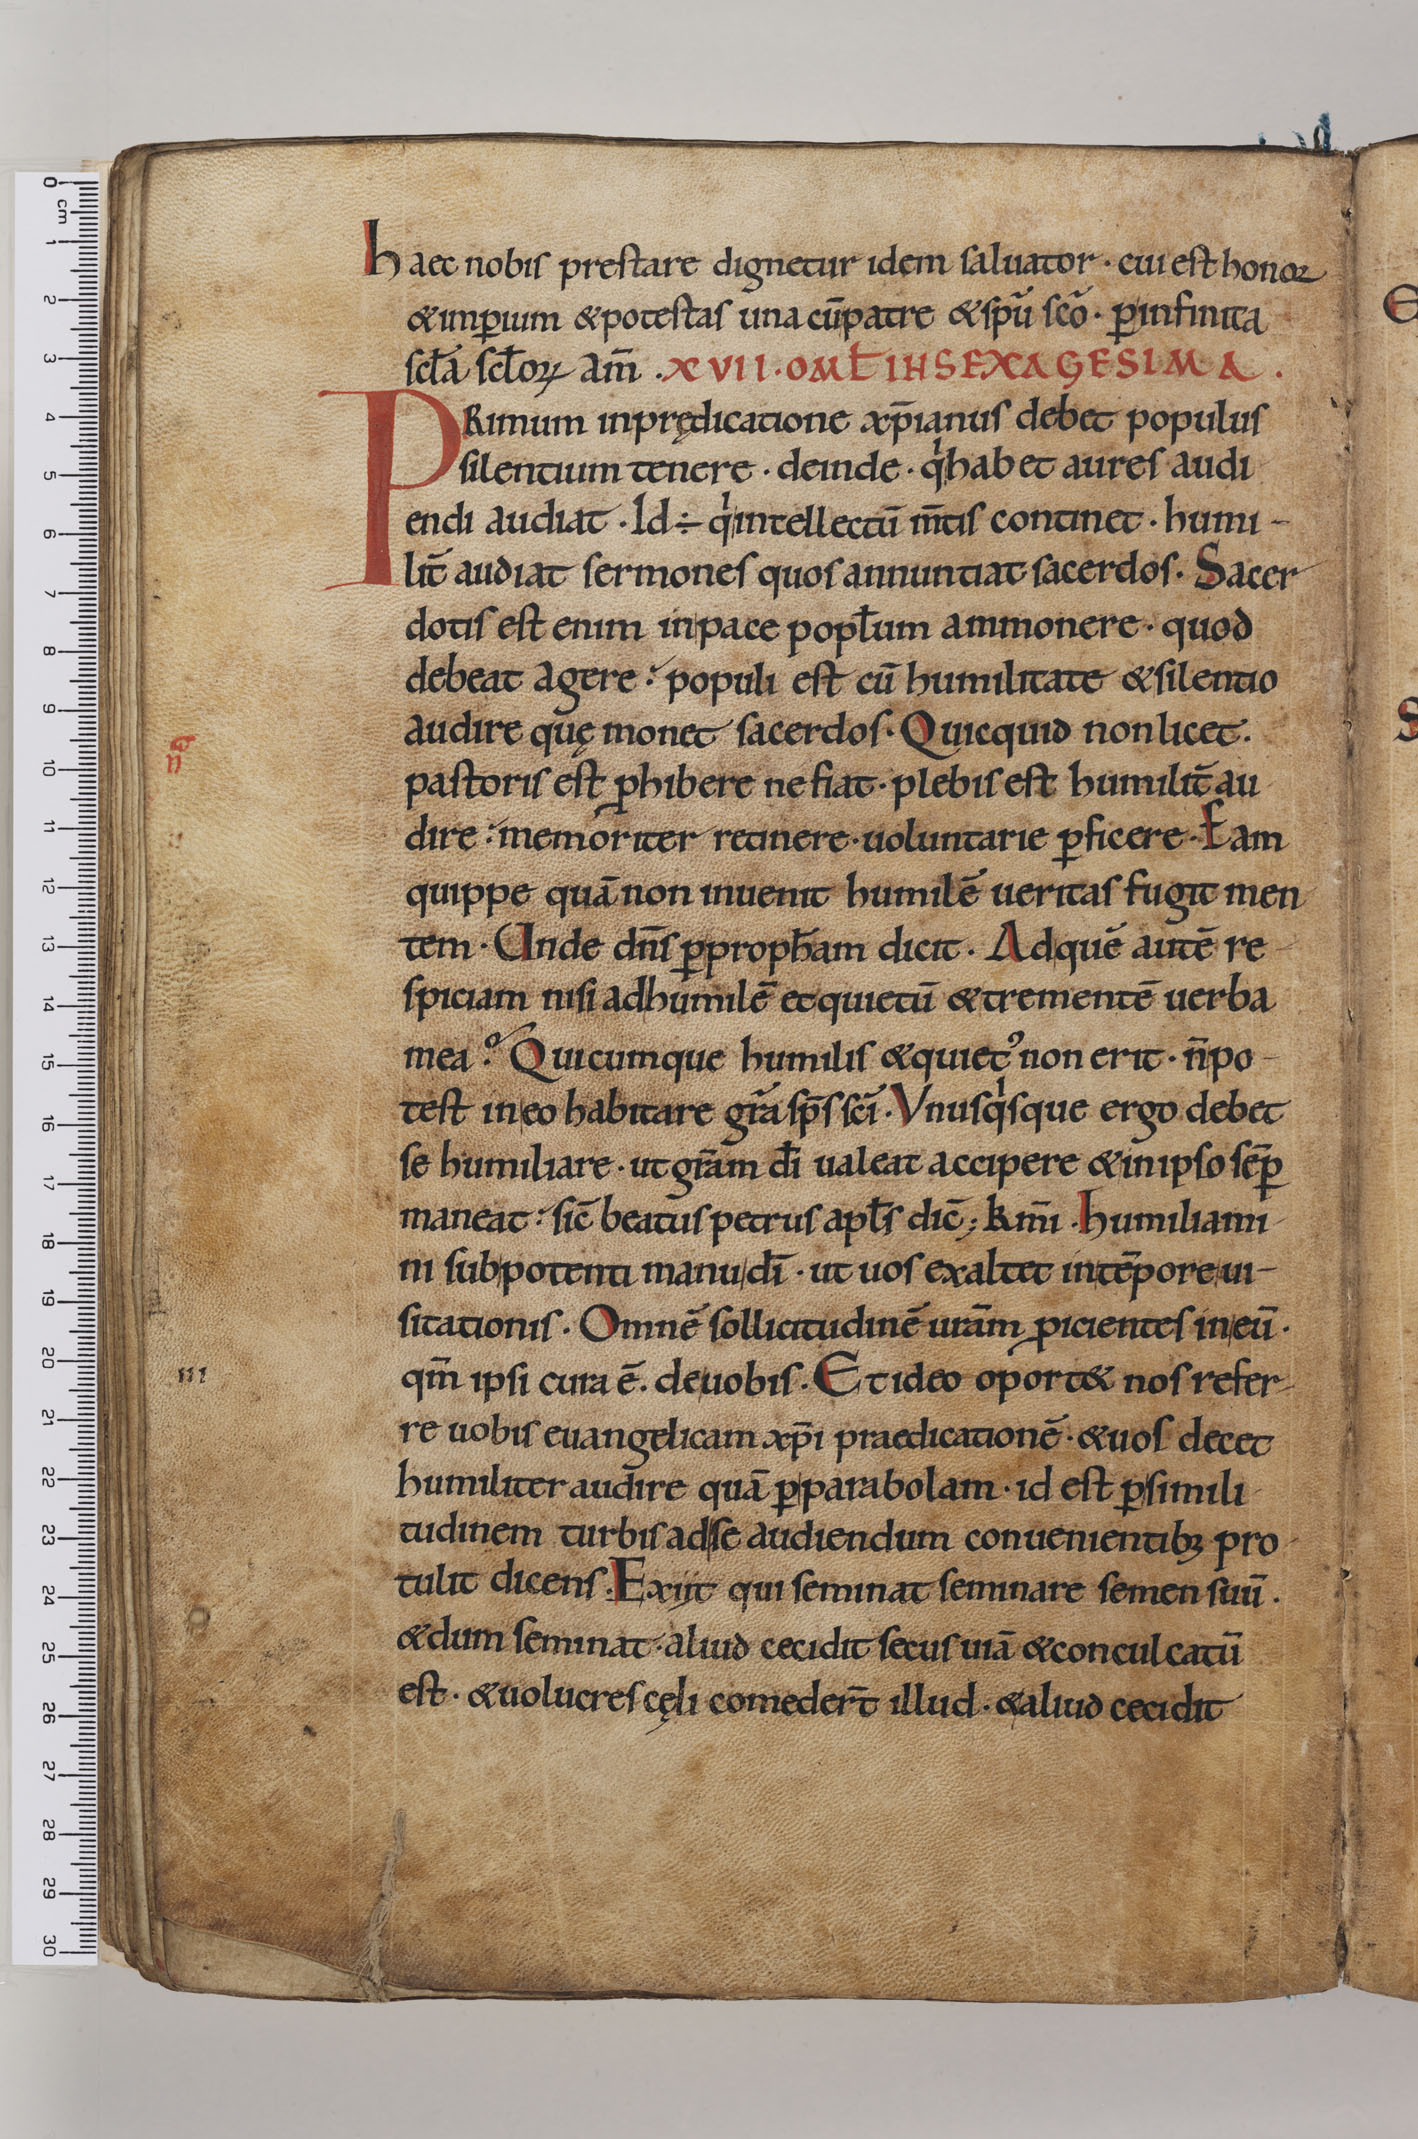 haec nobis prestare dignetur idem saluator · cui est honor
&imperium &potestas una cu̅ patre &sp̅u sc̅o · ꝑ infinita
scl̅a scl̅oꝝ am̅ . XVII · OML̅ IN SEXAGESIMA .
PRimum in prędicatione xp̅ianus debet populus
silentium tenere · deinde · qͥ habet aures audi
endi audiat · Id ÷ qͥ intellectu̅ m̅tis continet · humi-
lit̅ audiat sermones quos annuntiat sacerdos. Sacer
dotis est enim in pace popl̅um ammonere · quod
debeat agere : populi est cu̅ humilitate &silentio
audire quę monet sacerdos. Quicquid non licet.
pastoris est ꝓhibere ne fiat · plebis est humilit̅ au
dire : memoriter retinere · uoluntarie ꝑficere · Eam
quippe qua̅ non inuenit humile̅ ueritas fugit men
tem · Unde dn̅s ꝑ proph̅am dicit · Ad que̅ aute̅ re-
spiciam nisi ad humile̅ et quietu̅ &tremente̅ uerba
mea ? Quicumque humilis &quietꝰ non erit · n̅ po-
test in eo habitare gr̅a sp̅s sc̅i · Vnusqͥsque ergo debet
se humiliare · ut gr̅am d̅i ualeat accipere &in ipso semꝑ
maneat : sic̅ beatus petrus apl̅s dic̅ ; k̅mi · humiliami
ni sub potenti manu d̅i · ut uos exaltet in te̅pore ui-
sitationis · Omne̅ sollicitudine̅ ur̅am ꝓicientes in eu̅ ·
qm̅ ipsi cura e̅ . de uobis · Et ideo oport& nos refer-
re uobis euangelicam xp̅i praedicatione̅ · &uos decet
humiliter audire qua̅ ꝑ parabolam · id est ꝑ simili
tudinem turbis ad se audiendum conuenientibꝫ pro
tulit dicens . Exiit qui seminat seminare semen suu̅ .
&dum seminat · aliud cecidit secus uia̅ &conculcatu̅
est · &uolucres cęli comeder̅t illud · &aliud cecidit
III